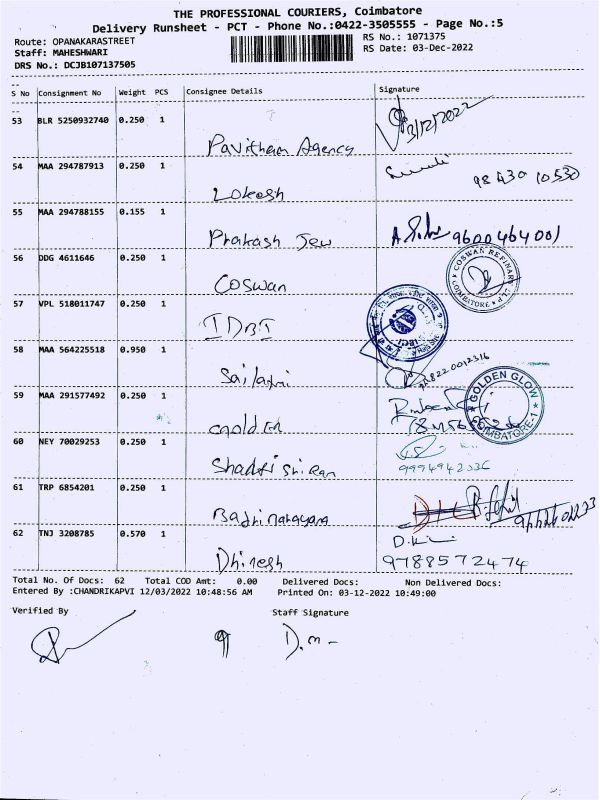 THE PROFESSIONAL COURIERS, Coimbatore
Delivery Runsheet - PCT - Phone No.:0422-3505555 - Page No.:5
Route: OPANAKARASTREET
Staff: MAHESHWARI
DRS No.: DCJB107137505
RS No.: 1071375
RS Date: 03-Dec-2022
S No Consignment No Weight PCS Consignee Details Signature
53 BLR 5250932740 0.250 1
Pavitham Agency 3/12/2022
54 MAA 294787913 0.250 1
Lokesh 98430 10530
55 MAA 294788155 0.155 1
Prakash Jew 9600464001
56 DDG 4611646 0.250 1
Coswan
COSWAN REFINARY
COIMBATORE
57 VPL 518011747 0.250 1
IDBI
58 MAA 564225518 0.950 1
59 MAA 291577492 0.250 1
Golden
GOLDEN GLOW
COIMBATORE-1
60 NEY 70029253 0.250 1
9994942336
61 TRP 6854201 0.250 1
Badrinarayana
62 TNJ 3208785 0.570 1
Dhinesh 9788572474
Total No. Of Docs: 62 Total COD Amt: 0.00 Delivered Docs: Non Delivered Docs:
Entered By :CHANDRIKAPVI 12/03/2022 10:48:56 AM Printed On: 03-12-2022 10:49:00
Verified By Staff Signature
D.m